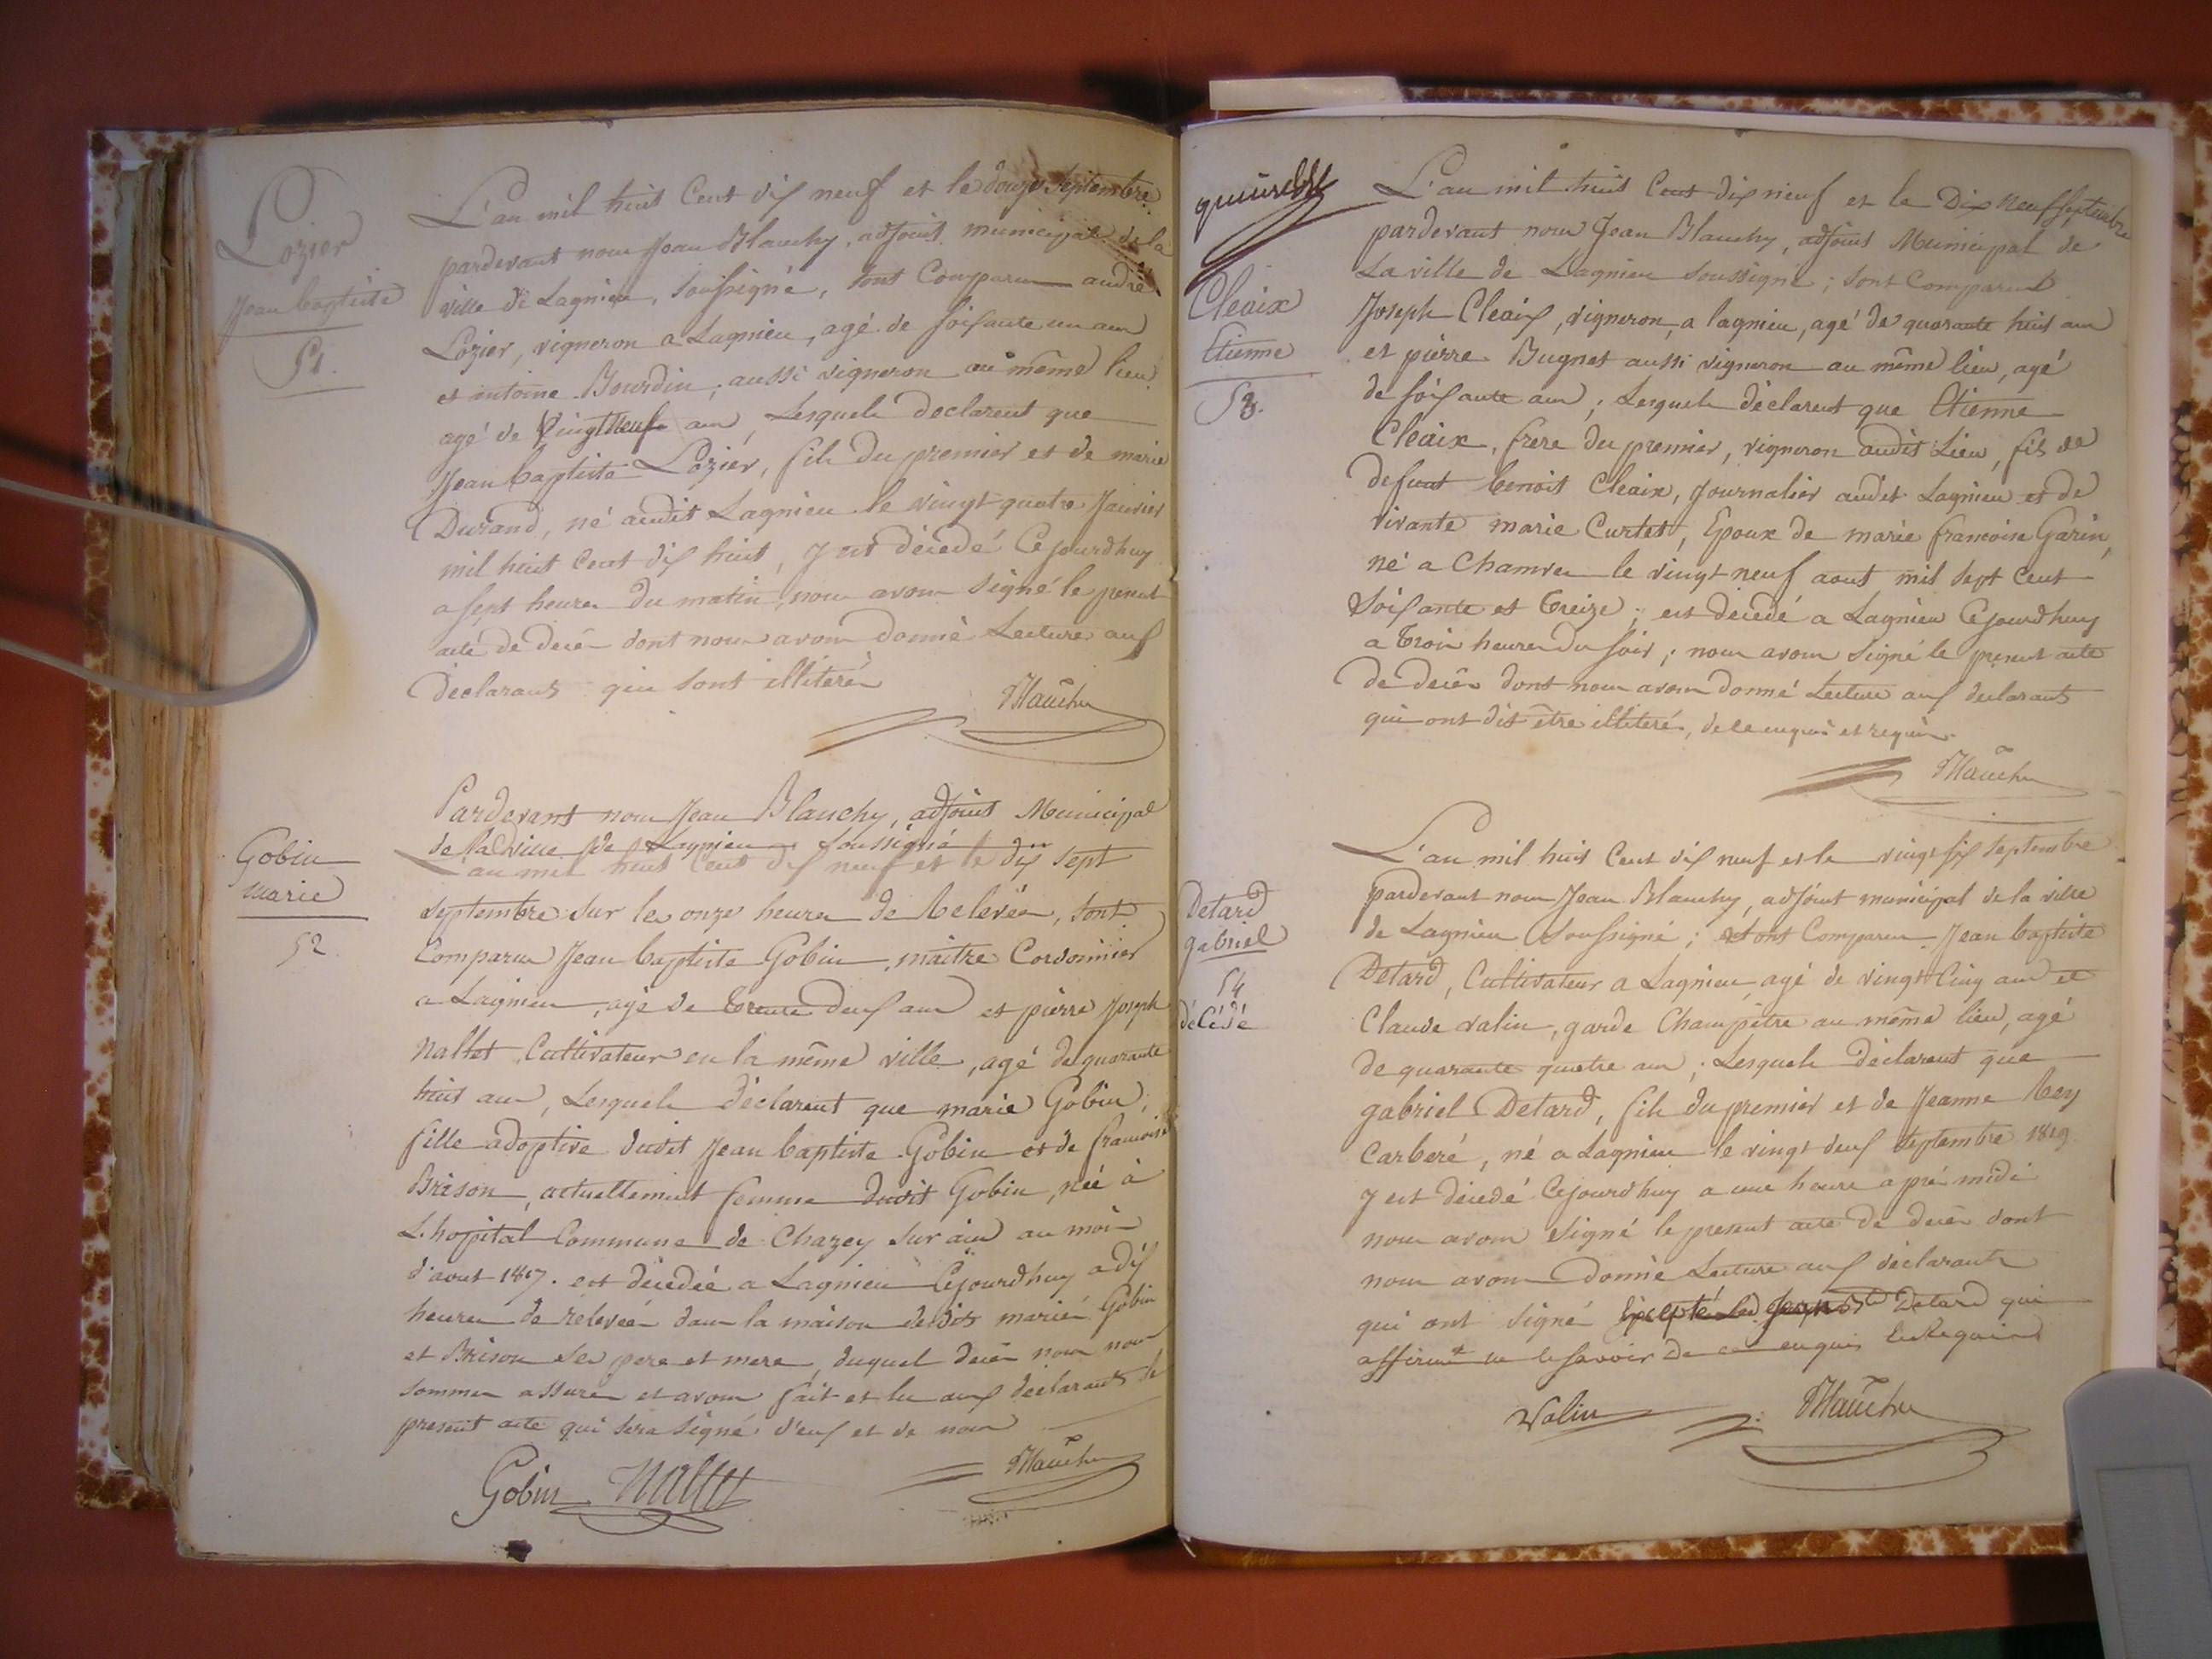 Lozier
Jean baptiste
51.
L'an mil huit Cent dix neuf et le douze Septembre
pardevant nous Jean Blanchy, adjoint municipal de la
ville de Lagnieu, soussigné, sont Comparus andré
Lozier, vigneron a Lagnieu, agé de soixante un ans
et antoine Bourdin, aussi vigneron au même lieu
agé de vingt neuf ans, Lesquels declarent que
Jean baptiste Lozier, fils du premier et de marie
Durand, né audit Lagnieu le vingt quatre Janvier
mil huit cent dix huit, y est décédé Cejourdhuy
a sept heures du matin, nous avons signé le present
acte de decès dont nous avons donné Lecture aux
déclarants qui sont illiterés
Blanchy
Gobin
marie
52
Pardevant nous Jean Blanchy, adjoint Municipal
de la ville de Lagnieu Soussigné
L'an mil huit Cent dix neuf et le dix sept
septembre sur les onze heures de Relevée, sont
Comparus Jean baptiste Gobin, maitre Cordonnier
a Lagnieu, agé de trente deux ans et pierre Joseph
nallet Cultivateur en la même ville, agé de quarante
huit ans, Lesquels déclarent que marie Gobin,
fille adoptive dudit Jean baptiste Gobin et de francoise
Brison, actuellement femme dudit Gobin, née à
L'hopital Commune de Chazey sur ain au mois
d'aout 1817. est décédée a Lagnieu Cejourdhuy a dix
heures de relevée dans la maison desdits mariés Gobin
et Brison ses pere et mere, duquel decès nous nous
sommes assurés et avons fait et lu aux déclarants le
present acte qui sera signé d'eux et de nous
Gobin Nallet Blanchy
Cleaix
Etienne
53.
L'an mil huit Cent dix neuf et le Dix neuf Septembre
pardevant nous Jean Blanchy, adjoint Municipal de
La ville de Lagnieu soussigné; sont Comparus
Joseph Cleaix, vigneron, a lagnieu, agé de quarante huit ans
et pierre Bugnet aussi vigneron au même lieu, agé
de soixante ans; Lesquels déclarent que Etienne
Cleaix, frere du premier, vigneron audit Lieu, fils de
defunt benoit Cleaix, Journalier audit Lagnieu et de
vivante marie Curtet, Epoux de marie francoise Garin,
né a Chamves le vingt neuf aout mil sept Cent
Soixante et treize; est décédé a Lagnieu Cejourdhuy
a trois heures du soir; nous avons signé le present acte
de decès dont nous avons donné Lecture aux declarants
qui ont dit être illiterés, de ce enquis et requis.
Blanchy
Detard
gabriel
54
décédé
L'an mil huit Cent dix neuf et le vingt six septembre
pardevant nous Jean Blanchy, adjoint municipal de la ville
de Lagnieu soussigné; sont Comparus Jean baptiste
Detard, Cultivateur a Lagnieu, agé de vingt Cinq ans et
Claude valin, garde Champêtre au même lieu, agé
de quarante quatre ans; Lesquels déclarent que
gabriel Detard, fils du premier et de Jeanne Rey
Carberé, né a Lagnieu le vingt deux septembre 1819
y est décédé Cejourdhuy a une heure après midi
nous avons signé le present acte de decès dont
nous avons Donné Lecture aux déclarants
qui ont signé Excepté Led. Detard qui
affirmt ne le savoir De ce enquis Et Requis
Valin Blanchy